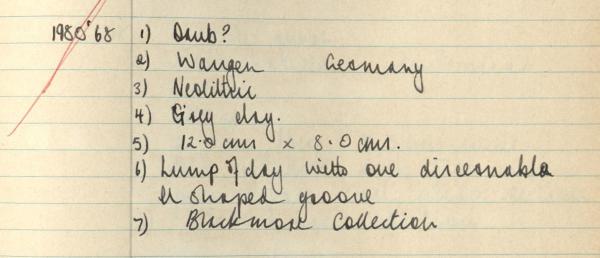 1980'68 1) Daub?
2) Wangen Germany
3) Neolithic
4) Grey clay.
5) 12.0 cms x 8.0 cms.
6) Lump of clay with one discernable
U shaped groove
7) Blackmore Collection